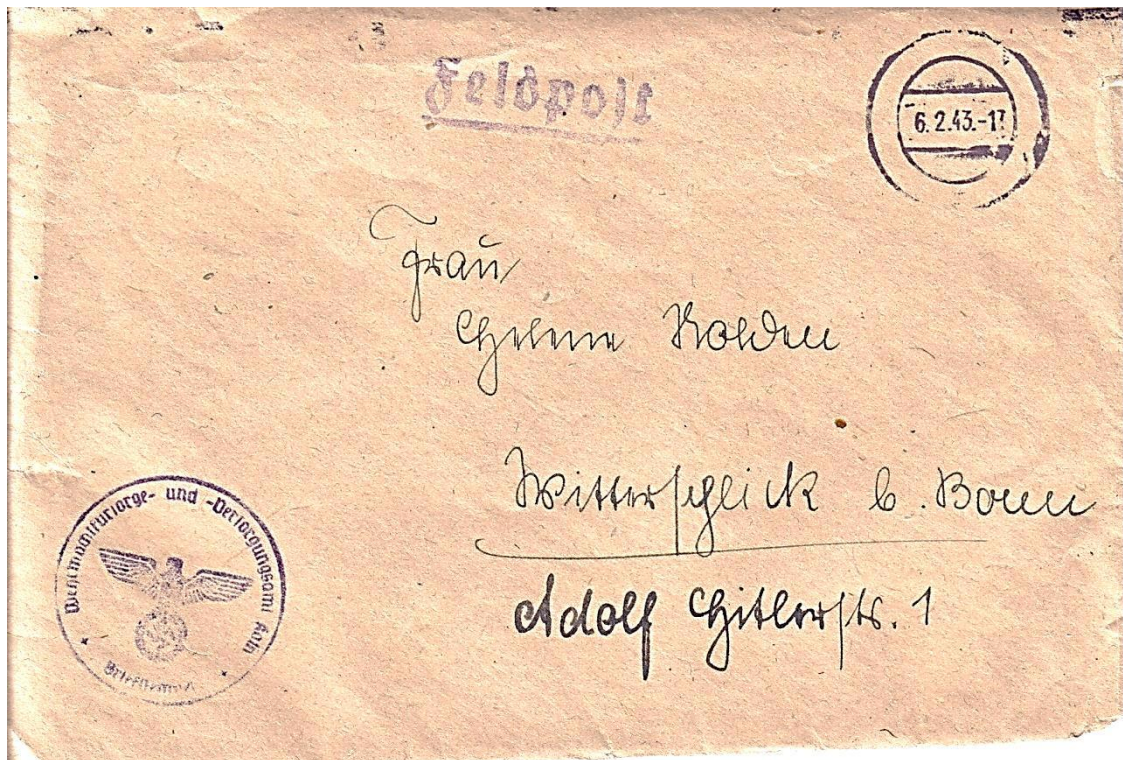 Feldpost
6.2.43.-17
Frau
Helene
Witterschlick b. Bonn
Adolf Hitlerstr. 1
Wehrmachtfürsorge- und -versorgungsamt Köln
Briefstempel